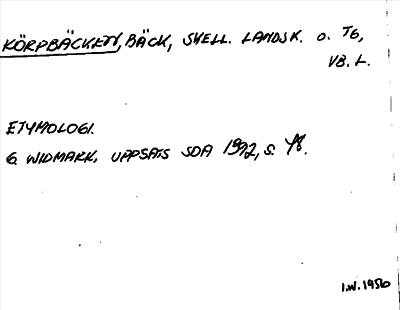 KÖRPBÄCKEN, BÄCK, SKELL. LANDSK. O. TG,
VB. L.
ETYMOLOGI.
G. WIDMARK, UPPSATS SOA 1972, S. 48.
I.W. 1956